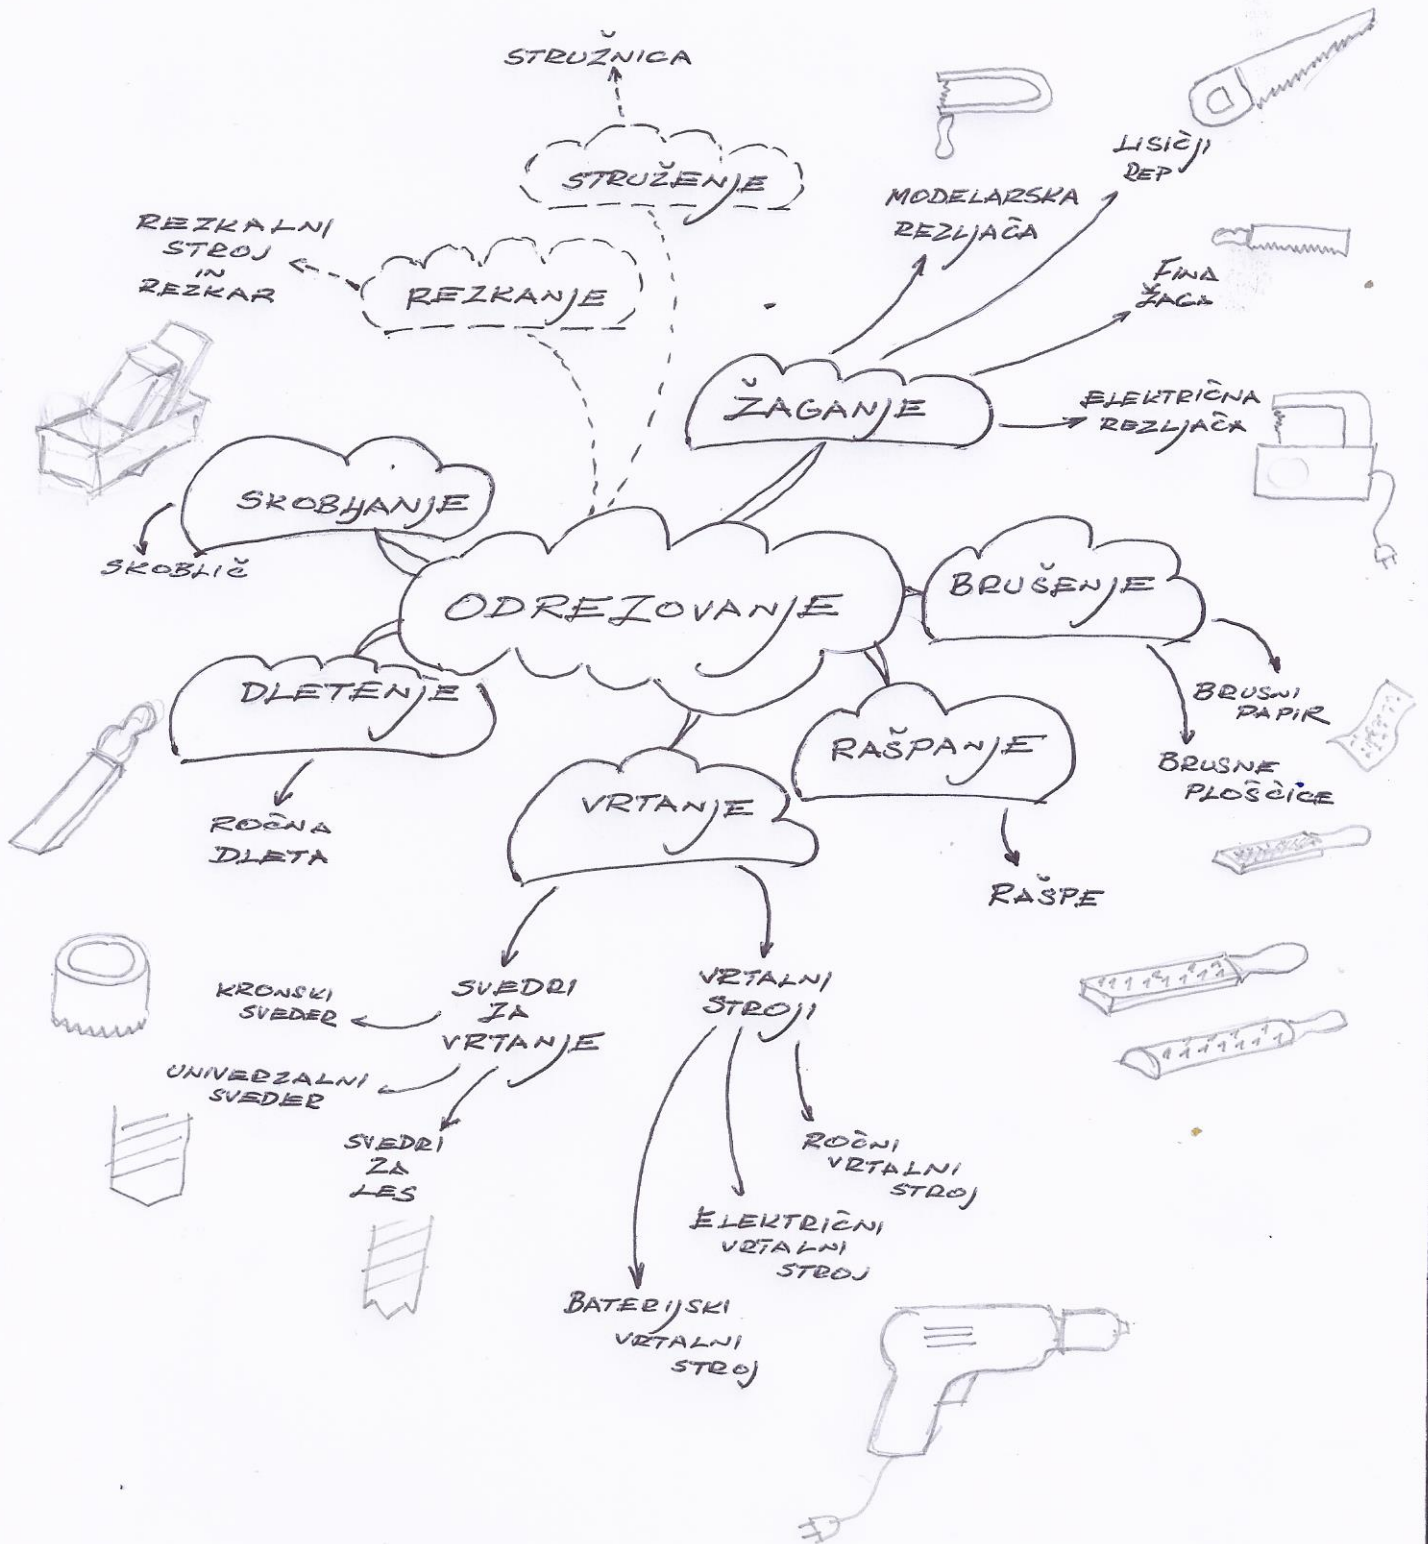 STRUŽNICA
STRUŽENJE
REZKALNI
STROJ
IN
REZKAR
REZKANJE
MODELARSKA
REZLJAČA
LISIČJI
REP
FINA
ŽAGA
ŽAGANJE
ELEKTRIČNA
REZLJAČA
SKOBLJANJE
SKOBLIČ
ODREZOVANJE
BRUŠENJE
BRUSNI
PAPIR
BRUSNE
PLOŠČICE
DLETENJE
ROČNA
DLETA
RAŠPANJE
RAŠPE
VRTANJE
SVEDRI
ZA
VRTANJE
KRONSKI
SVEDER
UNIVERZALNI
SVEDER
SVEDRI
ZA
LES
VRTALNI
STROJI
ROČNI
VRTALNI
STROJ
ELEKTRIČNI
VRTALNI
STROJ
BATERIJSKI
VRTALNI
STROJ